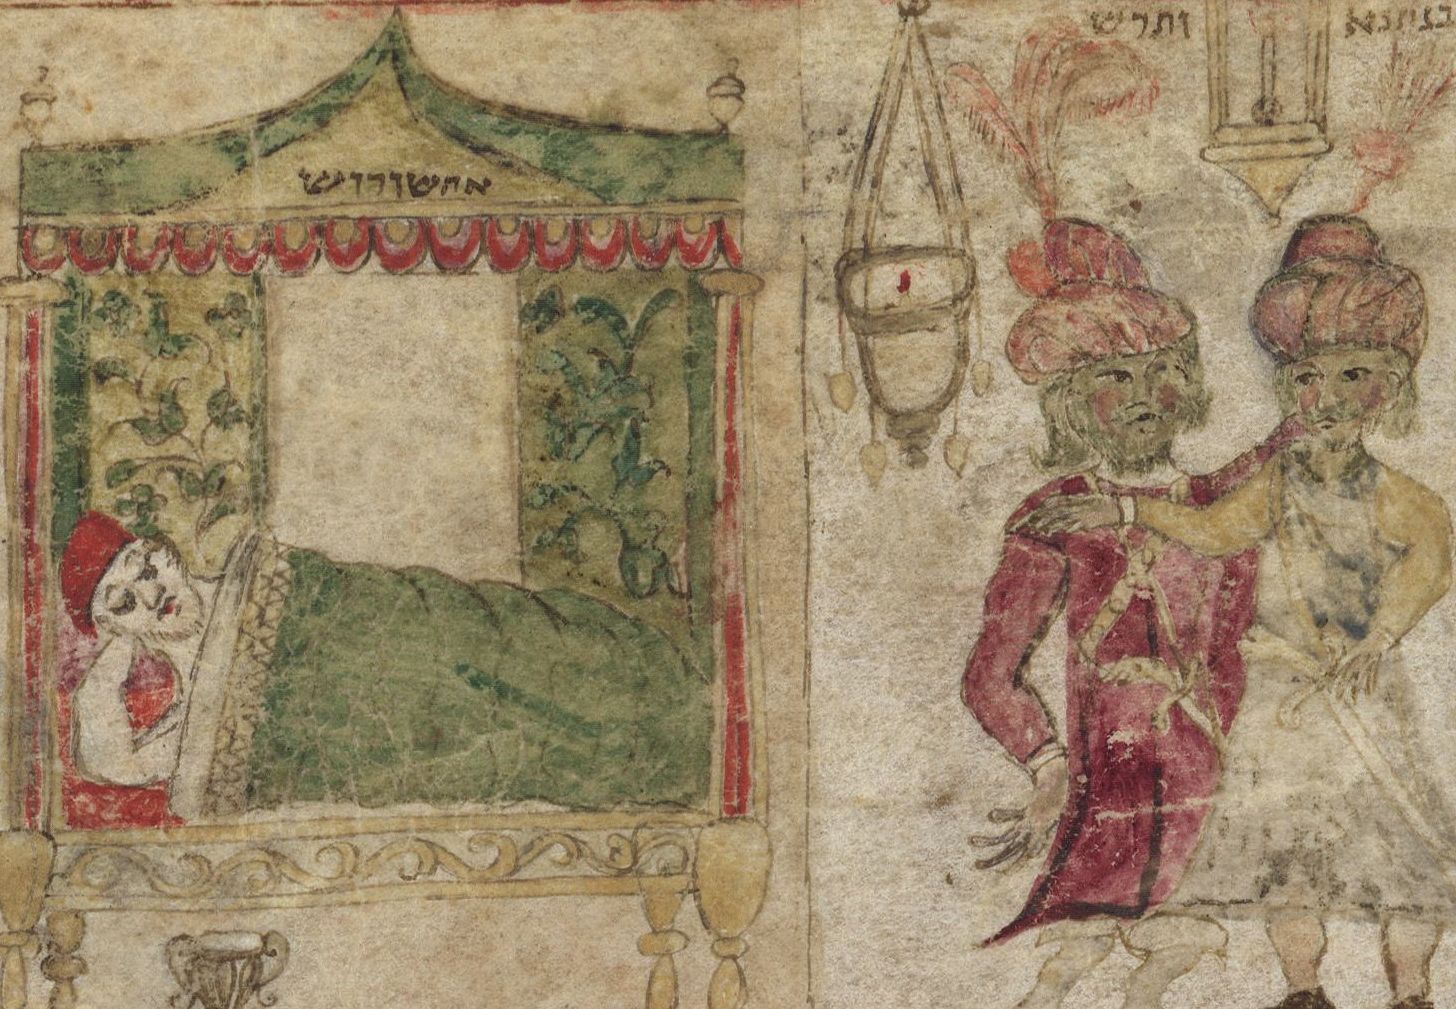 בגתנא ותרש
אחשורוש